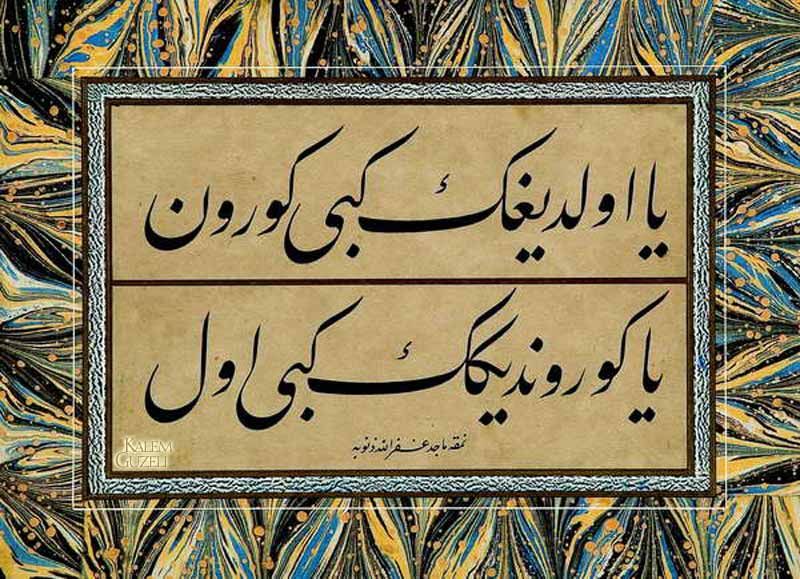 یا اولدیغك كبی كورون
یا كوروندیكك كبی اول
نمقه ماجد غفر الله ذنوبه
KALEM
GÜZELİ